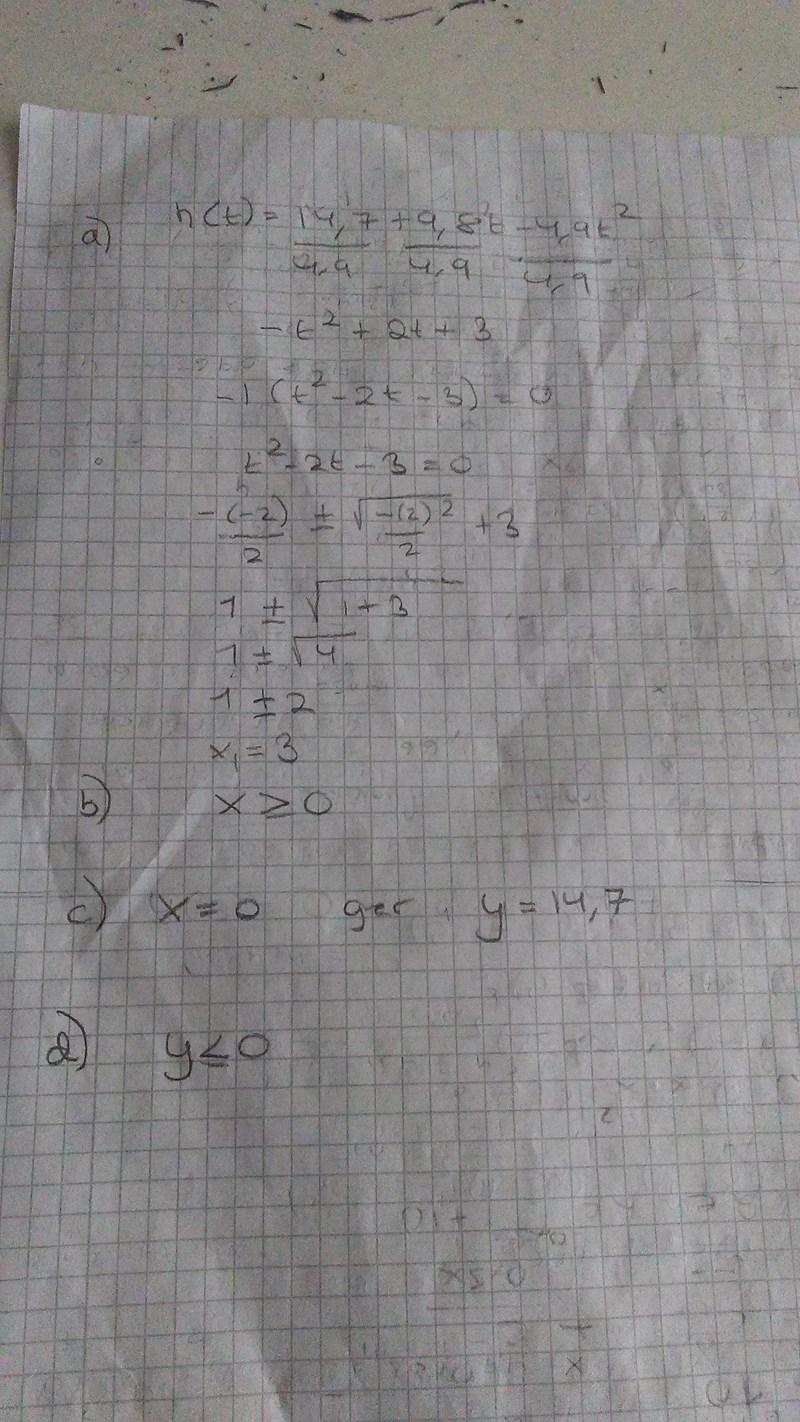 a) h(t) = 14,7/4,9 + 9,8t/4,9 - 4,9t²/4,9
-t² + 2t + 3
-1 (t² - 2t - 3) = 0
t² - 2t - 3 = 0
-(-2)/2 ± √(-(2)²/2) + 3
1 ± √(1 + 3)
1 ± √4
1 ± 2
x₁ = 3
b) x ≥ 0
c) x = 0 ger y = 14,7
d) y ≤ 0